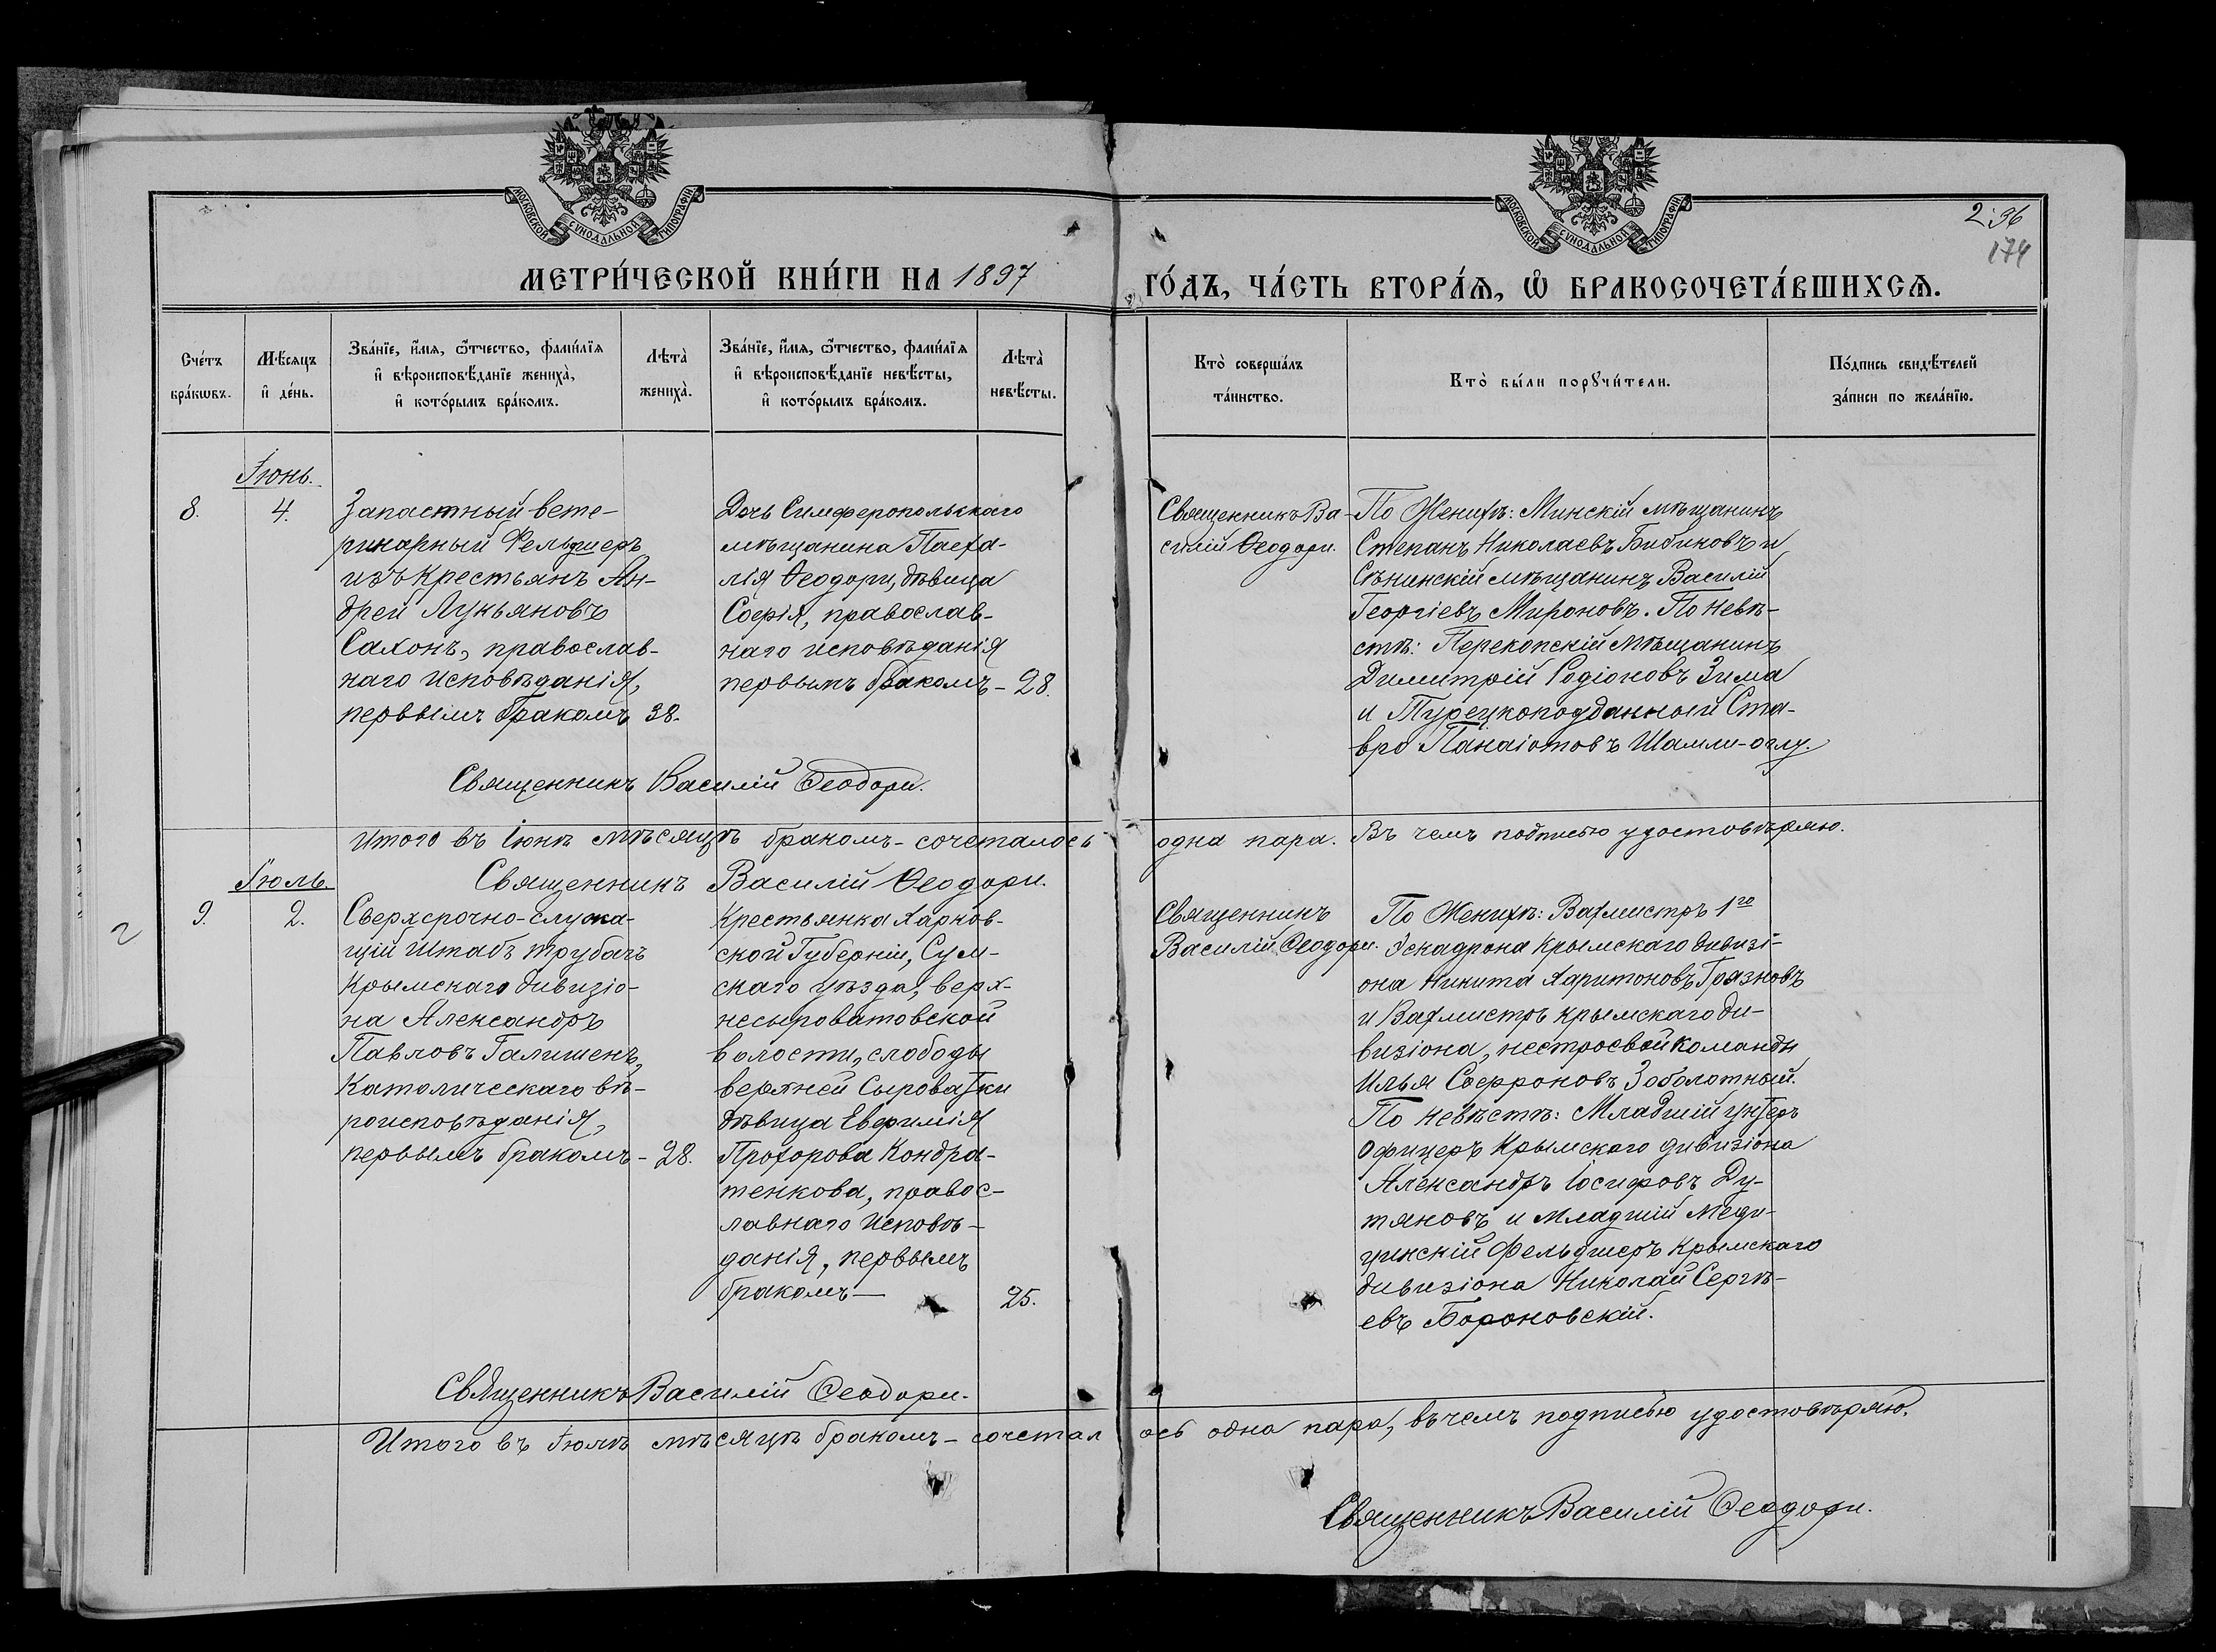 МОСКОВСКОЙ СѴНОДАЛЬНОЙ ТИПОГРАФІИ
МОСКОВСКОЙ СѴНОДАЛЬНОЙ ТИПОГРАФІИ
296
174
МЕТРИ́ЧЕСКОЙ КНИ́ГИ НА 1897
ГО́ДЪ, ЧА́СТЬ ВТОРА́Ѧ, Ѡ҆ БРАКОСОЧЕТА́ВШИХСѦ.
Сче́тъ
бра́кѡвъ.
Мѣ́сяцъ
и҆ де́нь.
Зва́нїе, и҆́мѧ, ѻ҆́тчество, фами́лїѧ
и҆ вѣроисповѣ́данїе жениха̀,
и҆ кото́рымъ бра́комъ.
Лѣта̀
жениха̀.
Зва́нїе, и҆́мѧ, ѻ҆́тчество, фами́лїѧ
и҆ вѣроисповѣ́данїе невѣ́сты,
и҆ кото́рымъ бра́комъ.
Лѣта̀
невѣ́сты.
Кто̀ соверша́лъ
та́инство.
Кто̀ бы́ли порꙋчи́тели.
По́дпись свидѣ́телей
за́писи по жела́нїю.
Іюнь.
8.
4.
Запастный вете-
ринарный Фельдшеръ
изъ крестьянъ Ан-
дрей Лукьяновъ
Сахонъ, православ-
наго исповѣданія,
первымъ бракомъ
38.
Дочь Симферопольскаго
мѣщанина Пасха-
лія Ѳеодори, дѣвица
Софія, православ-
наго исповѣданія
первымъ бракомъ - 28.
Священникъ Ва-
силій Ѳеодори.
По Женихѣ: Минскій мѣщанинъ
Степанъ Николаевъ Бибиковъ и
Сѣнинскій мѣщанинъ Василій
Георгіевъ Мироновъ. По невѣ-
стѣ: Перекопскій мѣщанинъ
Димитрій Родіоновъ Зима
и Турецкоподданный Ста-
вро Панаіотовъ Шамли-оглу.
Священникъ Василій Ѳеодори.
Итого въ Іюнѣ мѣсяцѣ бракомъ-сочеталось одна пара. Въ чемъ подписью удостовѣряю.
Священникъ Василій Ѳеодори.
Іюль.
2
9.
2.
Сверхсрочно-служа-
щій Штабъ трубачъ
Крымскаго дивизіо-
на Александръ
Павловъ Галишенъ,
Католическаго вѣ-
роисповѣданія,
первымъ бракомъ - 28.
Крестьянка Харков-
ской Губерніи, Сум-
скаго уѣзда, верх-
несыроватовской
волости, слободы
верхней Сыроватки
дѣвица Евфимія
Прохорова Кондра-
тенкова, правос-
лавнаго исповѣ-
данія, первымъ
бракомъ—
25.
Священникъ
Василій Ѳеодори.
По Женихѣ: Вахмистръ 1го
Эскадрона Крымскаго дивизі-
она Никита Харитоновъ Грязновъ
и Вахмистръ Крымскаго ди-
визіона, нестроевой команды
Илья Софроновъ Зоболотный.
По невѣстѣ: Младшій унтеръ
офицеръ Крымскаго дивизіона
Александръ Іосифовъ Ду-
тяновъ и младшій Меди-
цинскій фельдшеръ Крымскаго
дивизіона Николай Сергѣ-
евъ Бороновскій.
Священникъ Василій Ѳеодори.
Итого въ Іюлѣ мѣсяцѣ бракомъ-сочеталось одна пара, въ чемъ подписью удостовѣряю.
Священникъ Василій Ѳеодори.